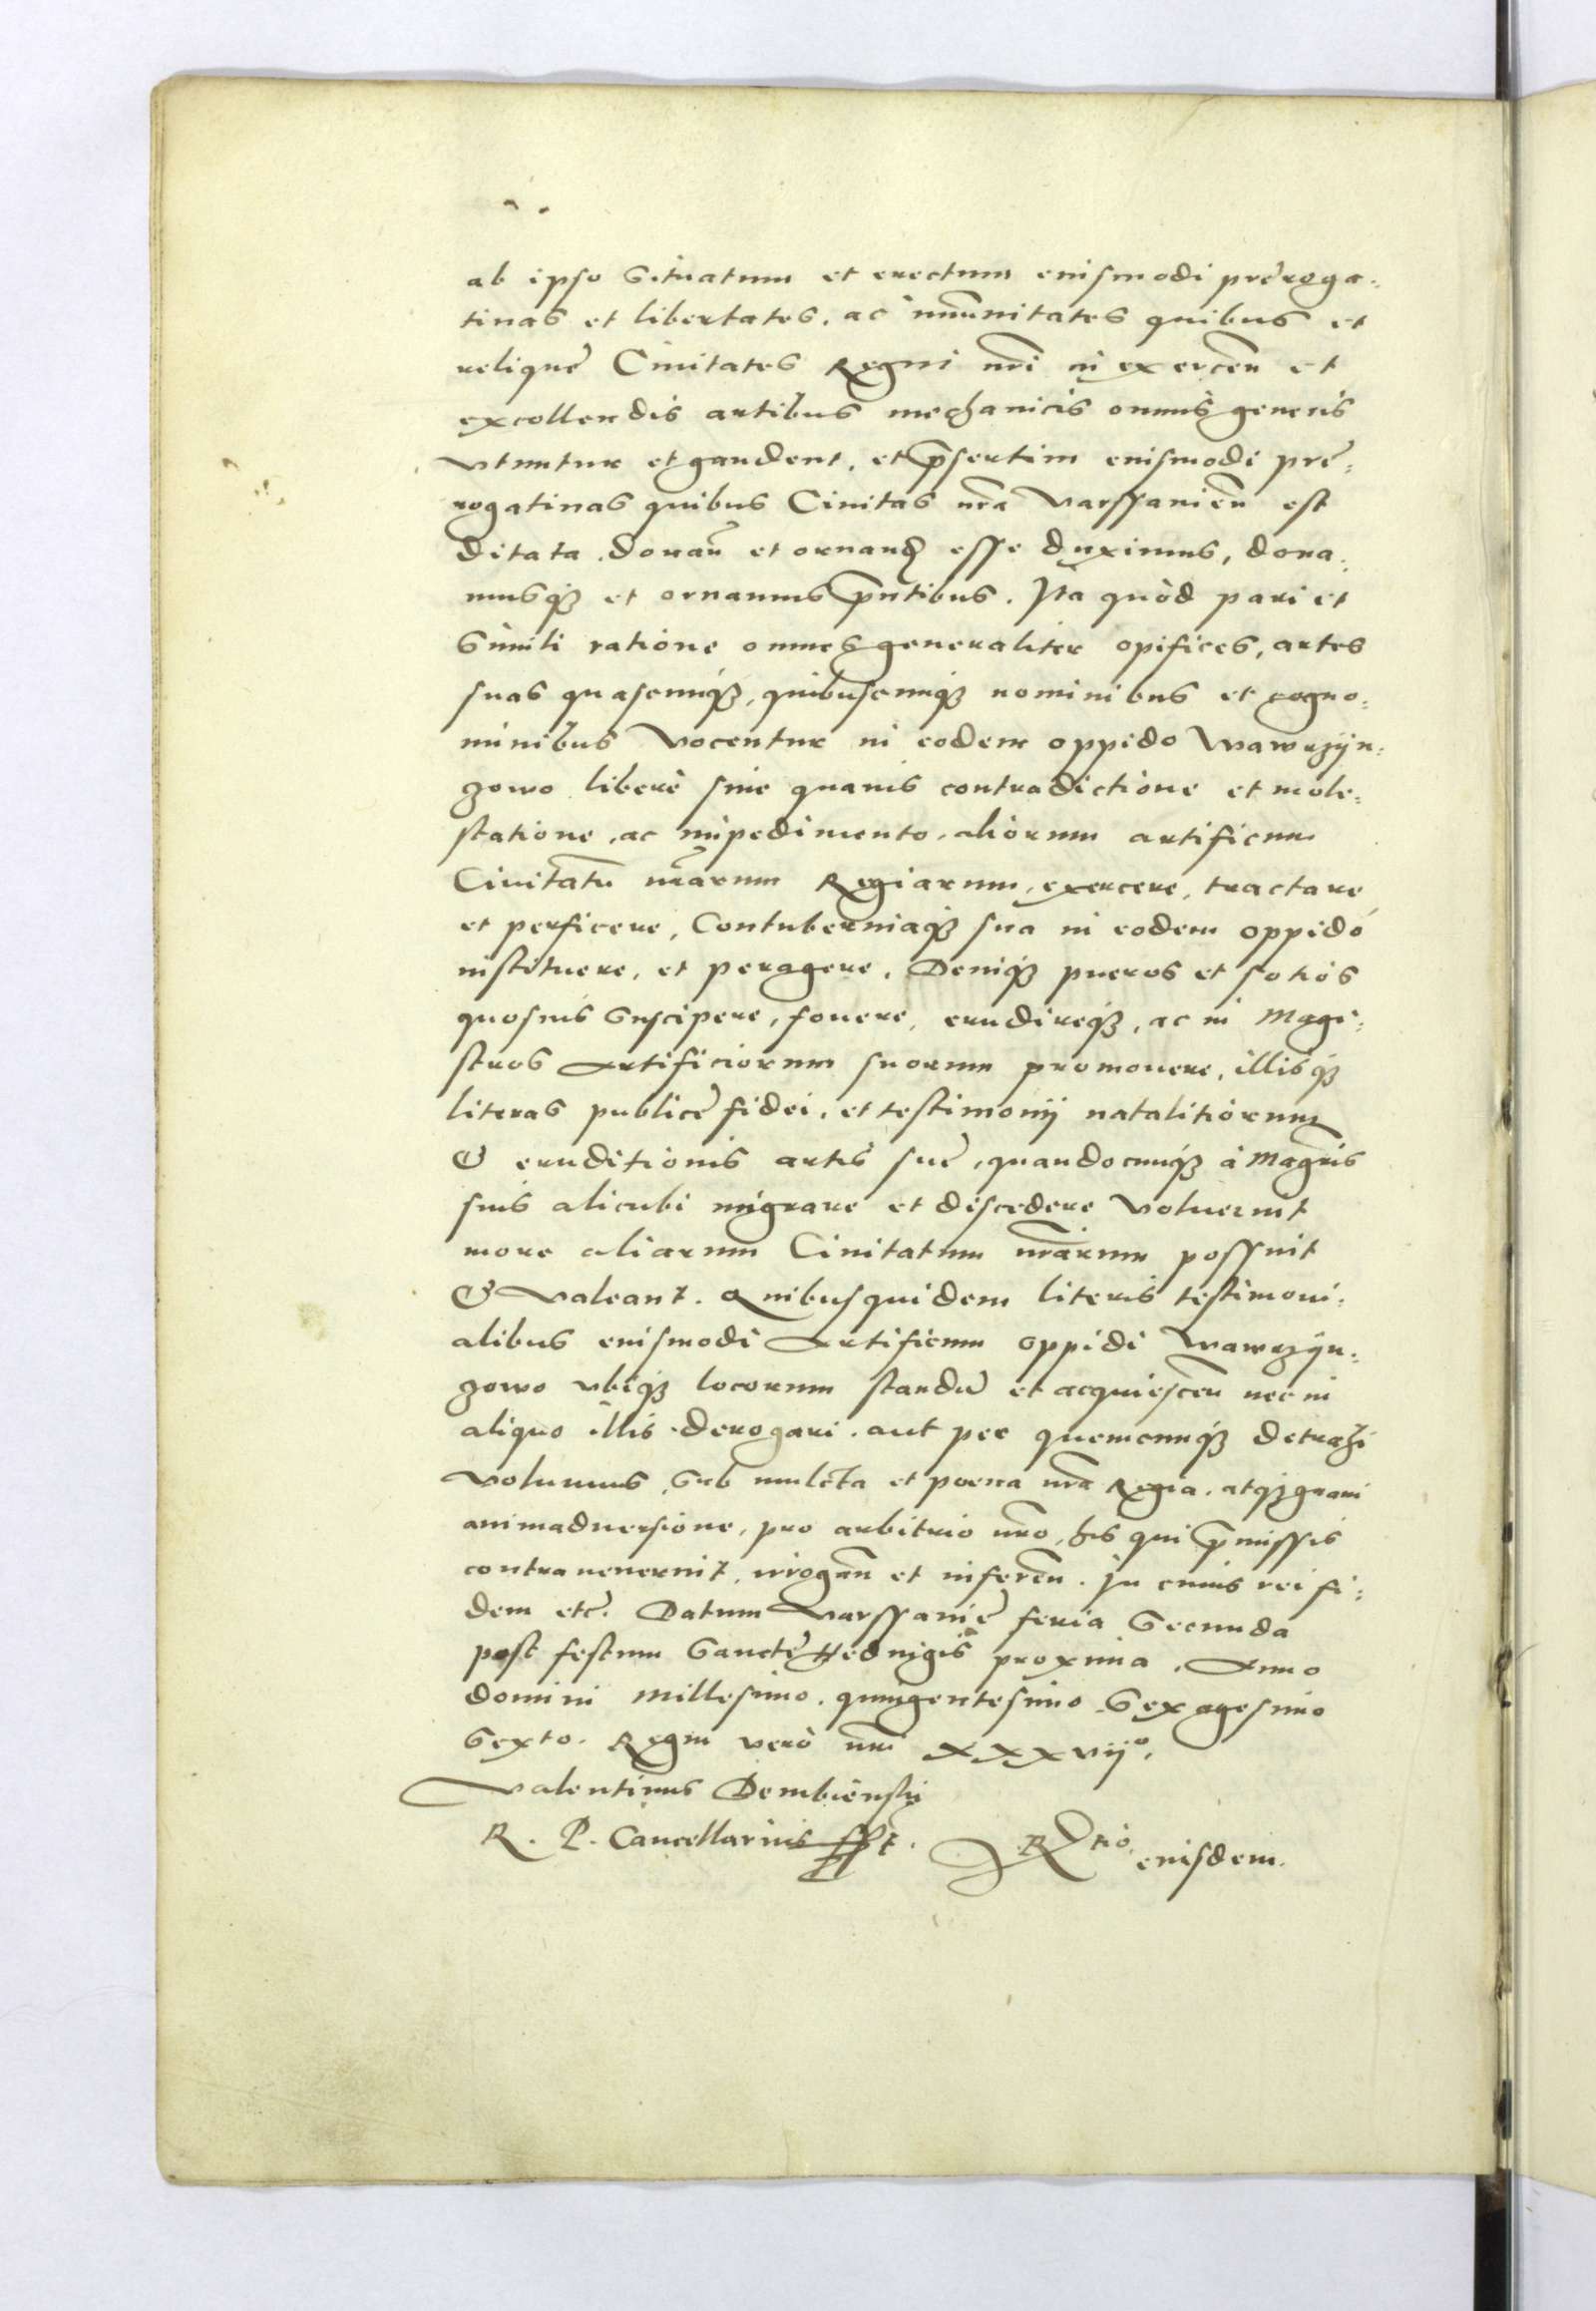 ab ipso situatum et erectum eiusmodi preroga:
tiuas et libertates, ac immunitates quibus et
relique Ciuitates Regni nri in exercen et
excollendis artibus mechanicis omnis generis
vtuntur et gaudent, et p̄sertim eiusmodi pre:
rogatiuas quibus Ciuitas nra Varssauien est
ditata donan et ornand esse duximus, dona:
musq et ornamus p̄ntibus. Ita quòd pari et
simili ratione omnes generaliter opifices, artes
suas quascunq, quibuscunq nominibus et cogno:
minibus vocentur in eodem oppido Wawrzÿn:
zowo liberè sine quauis contradictione et mole:
statione, ac impedimento, aliorum artificum
Ciuitatū nrarum Regiarum, exercere, tractare
et perficere, Contuberniaq sua in eodem oppido
instituere, et peragere. Deniq pueros et sotios
quosuis suscipere, fouere, erudireq, ac in Magi:
stros Artificiorum suorum promouere, illisq
literas publice fidei, et testimonij natalitiorum
& eruditionis artis sue, quandocunq à Magris
suis alicubi migrare et discedere voluerint
more aliarum Ciuitatum nrarum possint
& valeant. Quibusquidem literis testimoni:
alibus eiusmodi Artificum oppidi Wawrzÿn:
zowo vbiq locorum standū et acquiescen nec in
aliquo illis derogari aut per quemcunq detrahi
volumus, sub mulcta et poena nra Regia, atq graui
animaduersione, pro arbitrio nro, his qui p̄missis
contrauenerint, irrogan et inferen. In cuius rei fi:
dem etc. Datum Varssauie feria Secunda
post festum Sancte Heduigis proxima, Anno
domini Millesimo quingentesimo Sexagesimo
Sexto. Regni verò nri XXXvijº.
Valentinus Dembiensky
R. P. Cancellarius sspt. Rtio eiusdem.